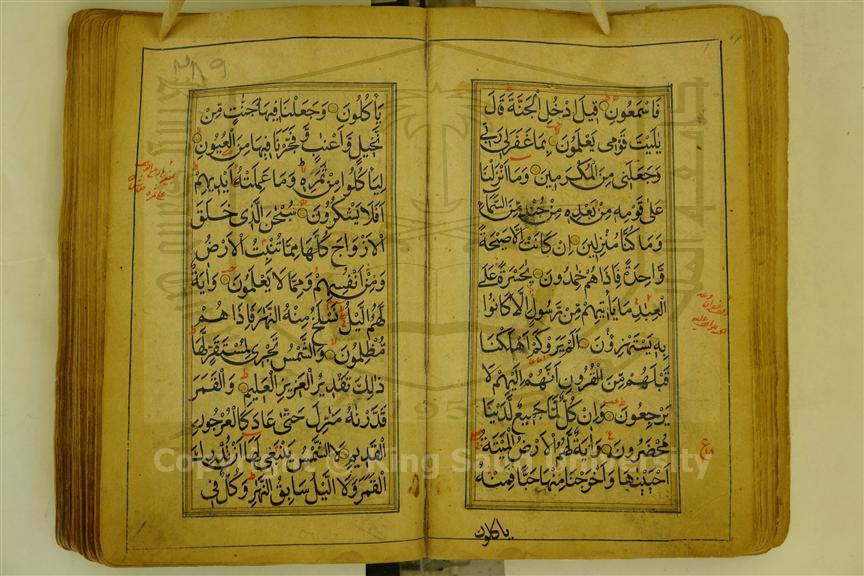 فَاسْمَعُونِ ۝ قِيلَ ادْخُلِ الْجَنَّةَ قَالَ
يٰلَيْتَ قَوْمِي يَعْلَمُونَ ۝ بِمَا غَفَرَ لِي رَبِّي
وَجَعَلَنِي مِنَ الْمُكْرَمِينَ ۝ وَمَا أَنْزَلْنَا
عَلَى قَوْمِهِ مِنْ بَعْدِهِ مِنْ جُنْدٍ مِنَ السَّمَاءِ
وَمَا كُنَّا مُنْزِلِينَ ۝ إِنْ كَانَتْ إِلَّا صَيْحَةً
وَاحِدَةً فَإِذَا هُمْ خٰمِدُونَ ۝ يٰحَسْرَةً عَلَى
الْعِبَادِ مَا يَأْتِيهِمْ مِنْ رَسُولٍ إِلَّا كَانُوا
بِهِ يَسْتَهْزِءُونَ ۝ أَلَمْ يَرَوْا كَمْ أَهْلَكْنَا
قَبْلَهُمْ مِنَ الْقُرُونِ أَنَّهُمْ إِلَيْهِمْ لَا
يَرْجِعُونَ ۝ وَإِنْ كُلٌّ لَمَّا جَمِيعٌ لَدَيْنَا
مُحْضَرُونَ ۝ وَآيَةٌ لَهُمُ الْأَرْضُ الْمَيْتَةُ
أَحْيَيْنٰهَا وَأَخْرَجْنَا مِنْهَا حَبًّا فَمِنْهُ
ياكلون
٣٨٩
يَأْكُلُونَ ۝ وَجَعَلْنَا فِيهَا جَنّٰتٍ مِنْ
نَخِيلٍ وَأَعْنٰبٍ وَفَجَّرْنَا فِيهَا مِنَ الْعُيُونِ ۝
لِيَأْكُلُوا مِنْ ثَمَرِهِ وَمَا عَمِلَتْهُ أَيْدِيهِمْ
أَفَلَا يَشْكُرُونَ ۝ سُبْحٰنَ الَّذِي خَلَقَ
الْأَزْوَاجَ كُلَّهَا مِمَّا تُنْبِتُ الْأَرْضُ
وَمِنْ أَنْفُسِهِمْ وَمِمَّا لَا يَعْلَمُونَ ۝ وَآيَةٌ
لَهُمُ الَّيْلُ نَسْلَخُ مِنْهُ النَّهَارَ فَإِذَا هُمْ
مُظْلِمُونَ ۝ وَالشَّمْسُ تَجْرِي لِمُسْتَقَرٍّ لَهَا
ذٰلِكَ تَقْدِيرُ الْعَزِيزِ الْعَلِيمِ ۝ وَالْقَمَرَ
قَدَّرْنٰهُ مَنَازِلَ حَتَّى عَادَ كَالْعُرْجُونِ
الْقَدِيمِ ۝ لَا الشَّمْسُ يَنْبَغِي لَهَا أَنْ تُدْرِكَ
الْقَمَرَ وَلَا الَّيْلُ سَابِقُ النَّهَارِ وَكُلٌّ فِي
Copyright © King Saud University